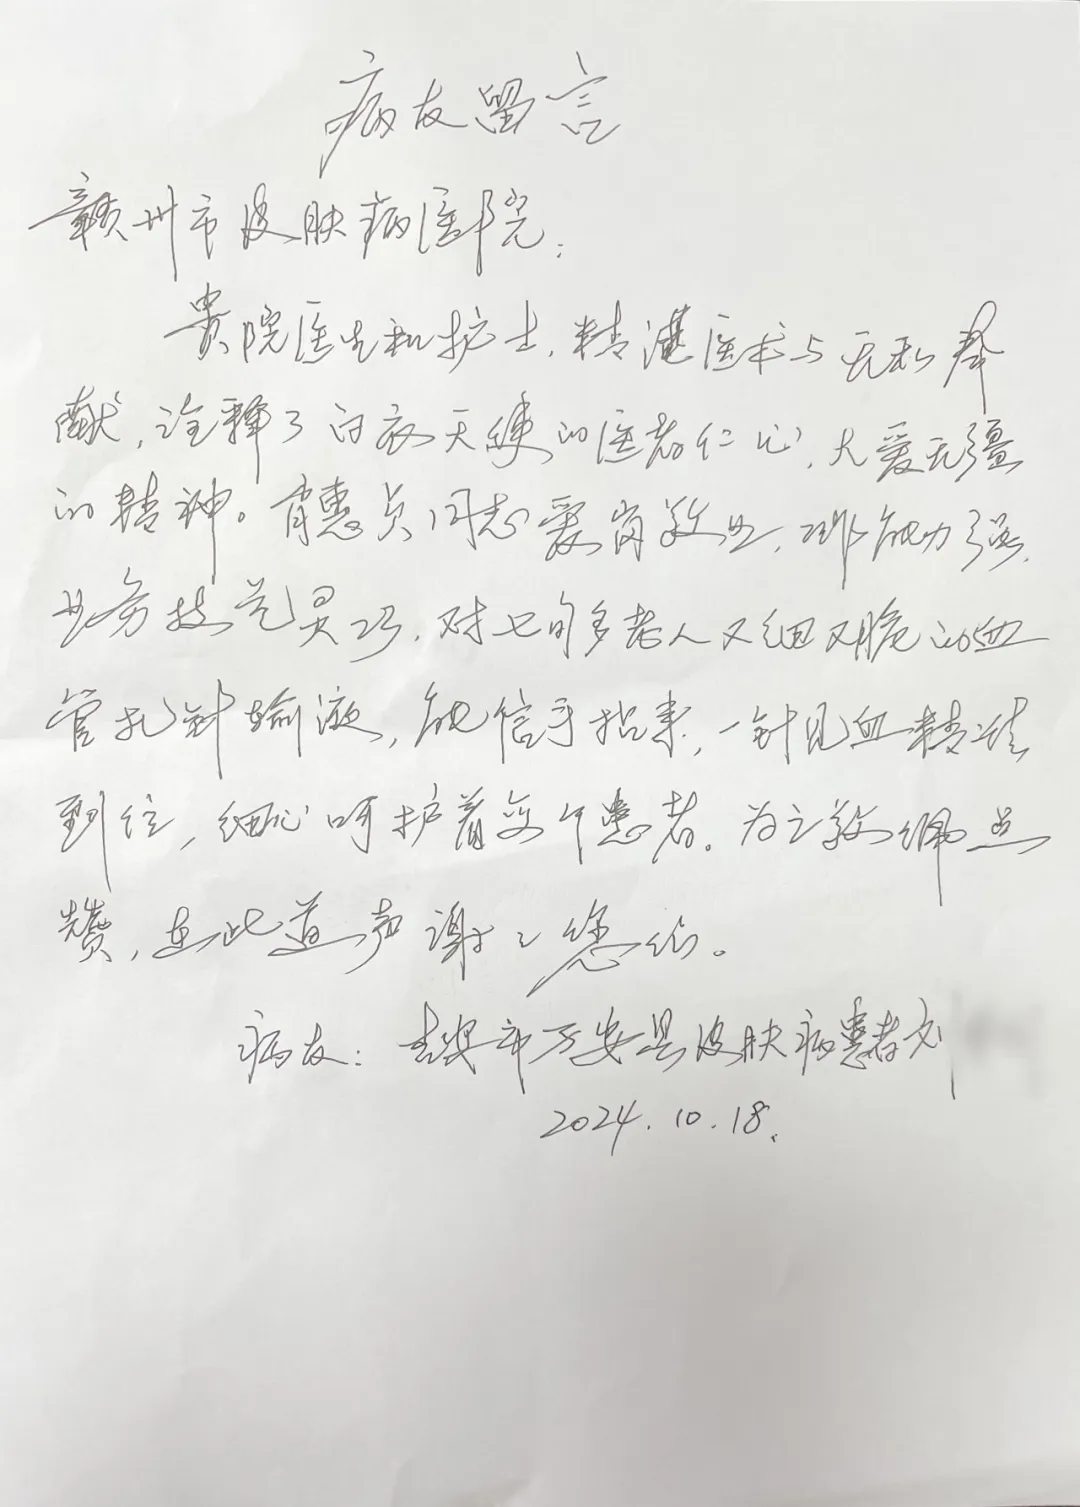 病友留言
赣州市皮肤病医院:
贵院医生和护士,精湛医术与无私奉
献,诠释了白衣天使的医者仁心,大爱无疆
的精神。肖惠贞同志爱岗敬业,工作能力强,
业务技艺灵巧,对七旬多老人又细又脆的血
管扎针输液,能信手拈来,一针见血精准
到位,细心呵护着每个患者。为之敬佩点
赞,在此道声谢々您们。
病友:吉安市万安县皮肤病患者
2024.10.18.